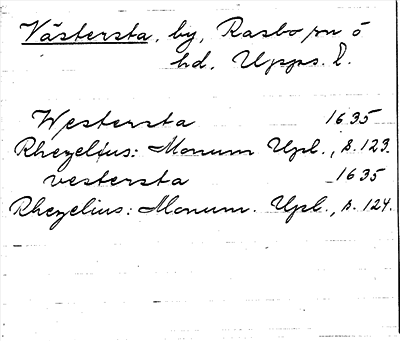 Västersta, by, Rasbo sn o
hd, Upps. l.
Westersta 1635
Rhezelius: Monum Upl., s. 123.
vestersta 1635
Rhezelius: Monum. Upl., s. 124.